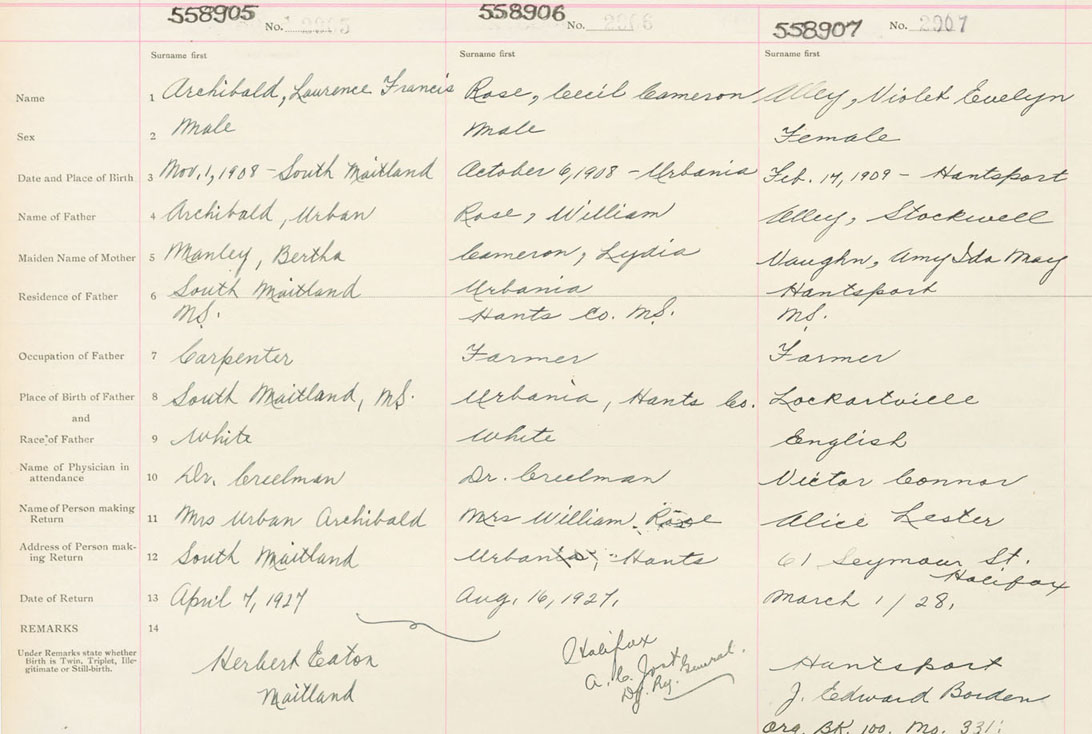 558905 No. 2905
558906 No. 2906
558907 No. 2907
Surname first Surname first Surname first
Name 1 Archibald, Laurence Francis Rose, Cecil Cameron Alley, Violet Evelyn
Sex 2 Male Male Female
Date and Place of Birth 3 Nov. 1, 1908 - South Maitland October 6, 1908 - Urbania Feb. 14, 1909 - Hantsport
Name of Father 4 Archibald, Urban Rose, William Alley, Stockwell
Maiden Name of Mother 5 Manley, Bertha Cameron, Lydia Vaughn, Amy Ida May
Residence of Father 6 South Maitland Urbania Hantsport
N.S. Hants Co. N.S. N.S.
Occupation of Father 7 Carpenter Farmer Farmer
Place of Birth of Father 8 South Maitland, N.S. Urbania, Hants Co. Lockartville
and
Race of Father 9 White White English
Name of Physician in
attendance 10 Dr. Creelman Dr. Creelman Victor Connor
Name of Person making
Return 11 Mrs Urban Archibald Mrs William Rose Alice Lester
Address of Person mak-
ing Return 12 South Maitland Urbania, Hants 61 Seymour St.
Halifax
Date of Return 13 April 7, 1927 Aug. 16, 1927. March 1/28.
REMARKS 14
Under Remarks state whether
Birth is Twin, Triplet, Ille-
gitimate or Still-birth.
Herbert Eaton
Maitland
Halifax
A. C. Jost
Dy. Reg. General.
Hantsport
J. Edward Borden
Org. BK. 100. No. 331.